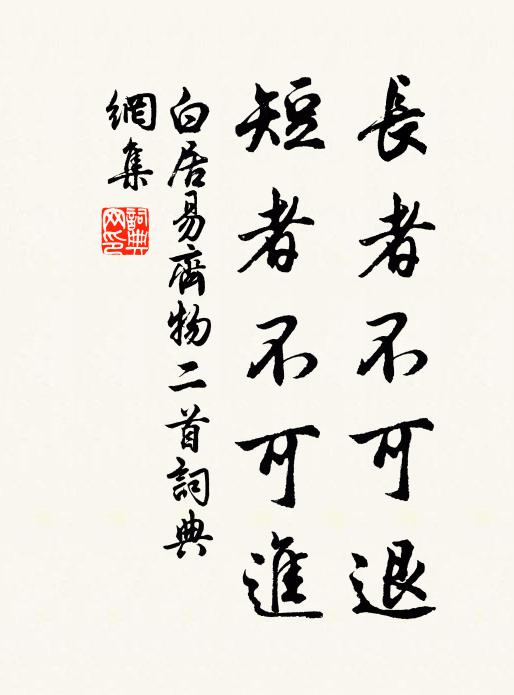 長者不可退
短者不可進
白居易齊物二首詞典
網集
詞典网印